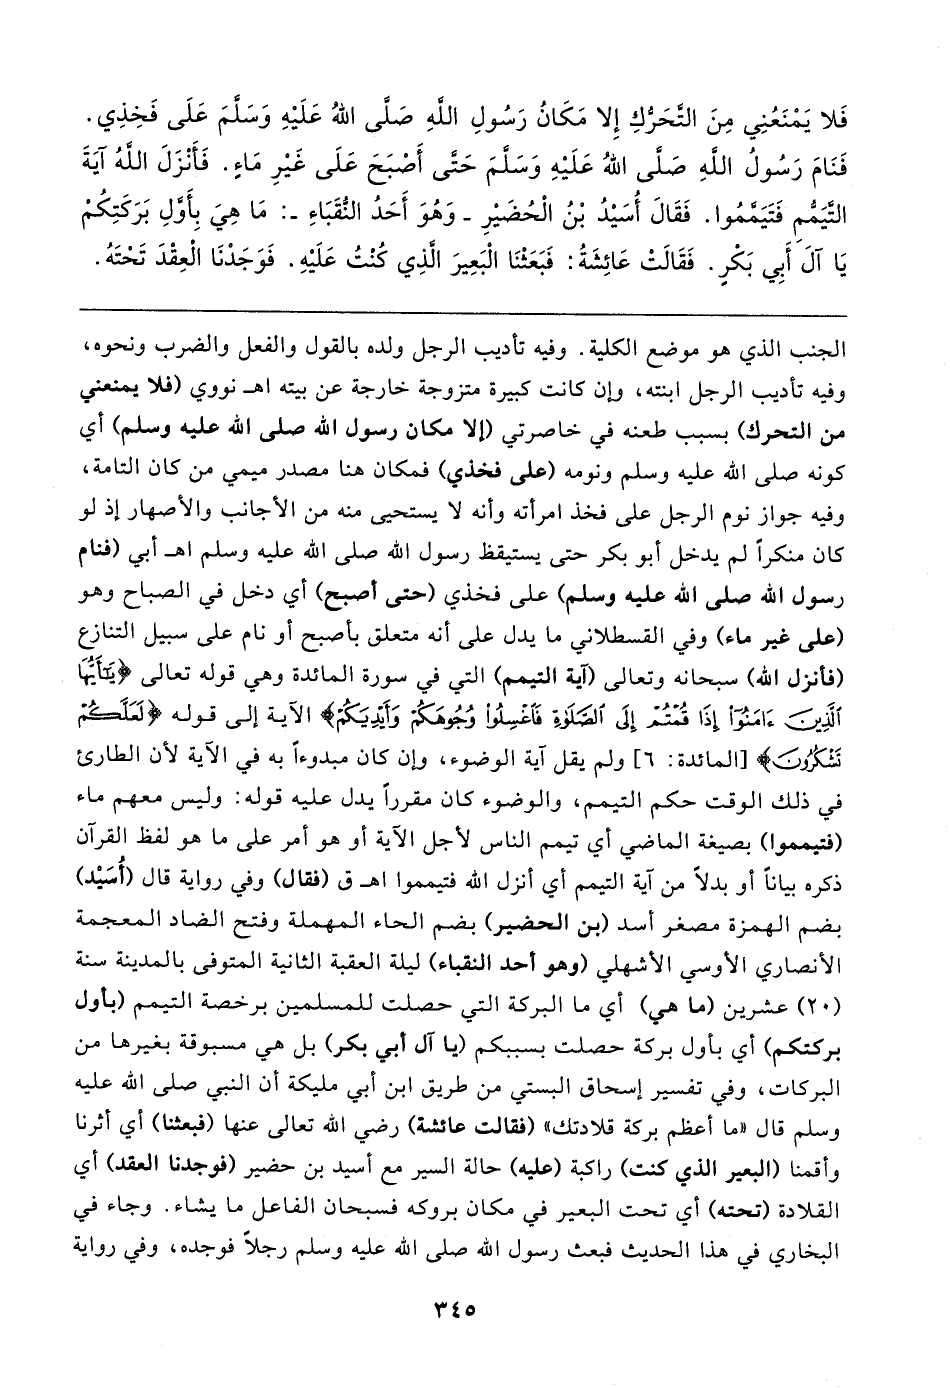 فَلا يَمْنَعُنِي مِنَ التَّحَرُّكِ إِلا مَكَانُ رَسُولِ اللَّهِ صَلَّى اللهُ عَلَيْهِ وَسَلَّمَ عَلَى فَخِذِي.
فَنَامَ رَسُولُ اللَّهِ صَلَّى اللهُ عَلَيْهِ وَسَلَّمَ حَتَّى أَصْبَحَ عَلَى غَيْرِ مَاءٍ. فَأَنْزَلَ اللَّهُ آيَةَ
التَّيَمُّمِ فَتَيَمَّمُوا. فَقَالَ أُسَيْدُ بْنُ الْحُضَيْرِ ـ وَهُوَ أَحَدُ النُّقَبَاءِ ـ: مَا هِيَ بِأَوَّلِ بَرَكَتِكُمْ
يَا آلَ أَبِي بَكْرٍ. فَقَالَتْ عَائِشَةُ: فَبَعَثْنَا الْبَعِيرَ الَّذِي كُنْتُ عَلَيْهِ. فَوَجَدْنَا الْعِقْدَ تَحْتَهُ.
الجنب الذي هو موضع الكلية. وفيه تأديب الرجل ولده بالقول والفعل والضرب ونحوه،
وفيه تأديب الرجل ابنته، وإن كانت كبيرة متزوجة خارجة عن بيته اهـ نووي (فلا يمنعني
من التحرك) بسبب طعنه في خاصرتي (إلا مكان رسول الله صلى الله عليه وسلم) أي
كونه صلى الله عليه وسلم ونومه (على فخذي) فمكان هنا مصدر ميمي من كان التامة،
وفيه جواز نوم الرجل على فخذ امرأته وأنه لا يستحيى منه من الأجانب والأصهار إذ لو
كان منكراً لم يدخل أبو بكر حتى يستيقظ رسول الله صلى الله عليه وسلم اهـ أبي (فنام
رسول الله صلى الله عليه وسلم) على فخذي (حتى أصبح) أي دخل في الصباح وهو
(على غير ماء) وفي القسطلاني ما يدل على أنه متعلق بأصبح أو نام على سبيل التنازع
(فأنزل الله) سبحانه وتعالى (آية التيمم) التي في سورة المائدة وهي قوله تعالى ﴿يَٰٓأَيُّهَا
ٱلَّذِينَ ءَامَنُوٓا۟ إِذَا قُمْتُمْ إِلَى ٱلصَّلَوٰةِ فَٱغْسِلُوا۟ وُجُوهَكُمْ وَأَيْدِيَكُمْ﴾ الآية إلى قوله ﴿لَعَلَّكُمْ
تَشْكُرُونَ﴾ [المائدة: ٦] ولم يقل آية الوضوء، وإن كان مبدوءاً به في الآية لأن الطارئ
في ذلك الوقت حكم التيمم، والوضوء كان مقرراً يدل عليه قوله: وليس معهم ماء
(فتيمموا) بصيغة الماضي أي تيمم الناس لأجل الآية أو هو أمر على ما هو لفظ القرآن
ذكره بياناً أو بدلاً من آية التيمم أي أنزل الله فتيمموا اهـ ق (فقال) وفي رواية قال (أُسَيْد)
بضم الهمزة مصغر أسد (بن الحضير) بضم الحاء المهملة وفتح الضاد المعجمة
الأنصاري الأوسي الأشهلي (وهو أحد النقباء) ليلة العقبة الثانية المتوفى بالمدينة سنة
(٢٠) عشرين (ما هي) أي ما البركة التي حصلت للمسلمين برخصة التيمم (بأول
بركتكم) أي بأول بركة حصلت بسببكم (يا آل أبي بكر) بل هي مسبوقة بغيرها من
البركات، وفي تفسير إسحاق البستي من طريق ابن أبي مليكة أن النبي صلى الله عليه
وسلم قال «ما أعظم بركة قلادتك» (فقالت عائشة) رضي الله تعالى عنها (فبعثنا) أي أثرنا
وأقمنا (البعير الذي كنت) راكبة (عليه) حالة السير مع أسيد بن حضير (فوجدنا العقد) أي
القلادة (تحته) أي تحت البعير في مكان بروكه فسبحان الفاعل ما يشاء. وجاء في
البخاري في هذا الحديث فبعث رسول الله صلى الله عليه وسلم رجلاً فوجده، وفي رواية
٣٤٥